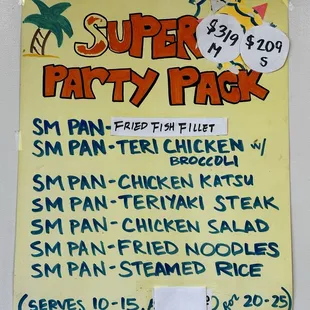 SUPER
$319
M
$209
S
PARTY PACK
SM PAN-FRIED FISH FILLET
SM PAN-TERI CHICKEN w/
BROCCOLI
SM PAN-CHICKEN KATSU
SM PAN-TERIYAKI STEAK
SM PAN-CHICKEN SALAD
SM PAN-FRIED NOODLES
SM PAN-STEAMED RICE
(SERVES 10-15, 20-25)